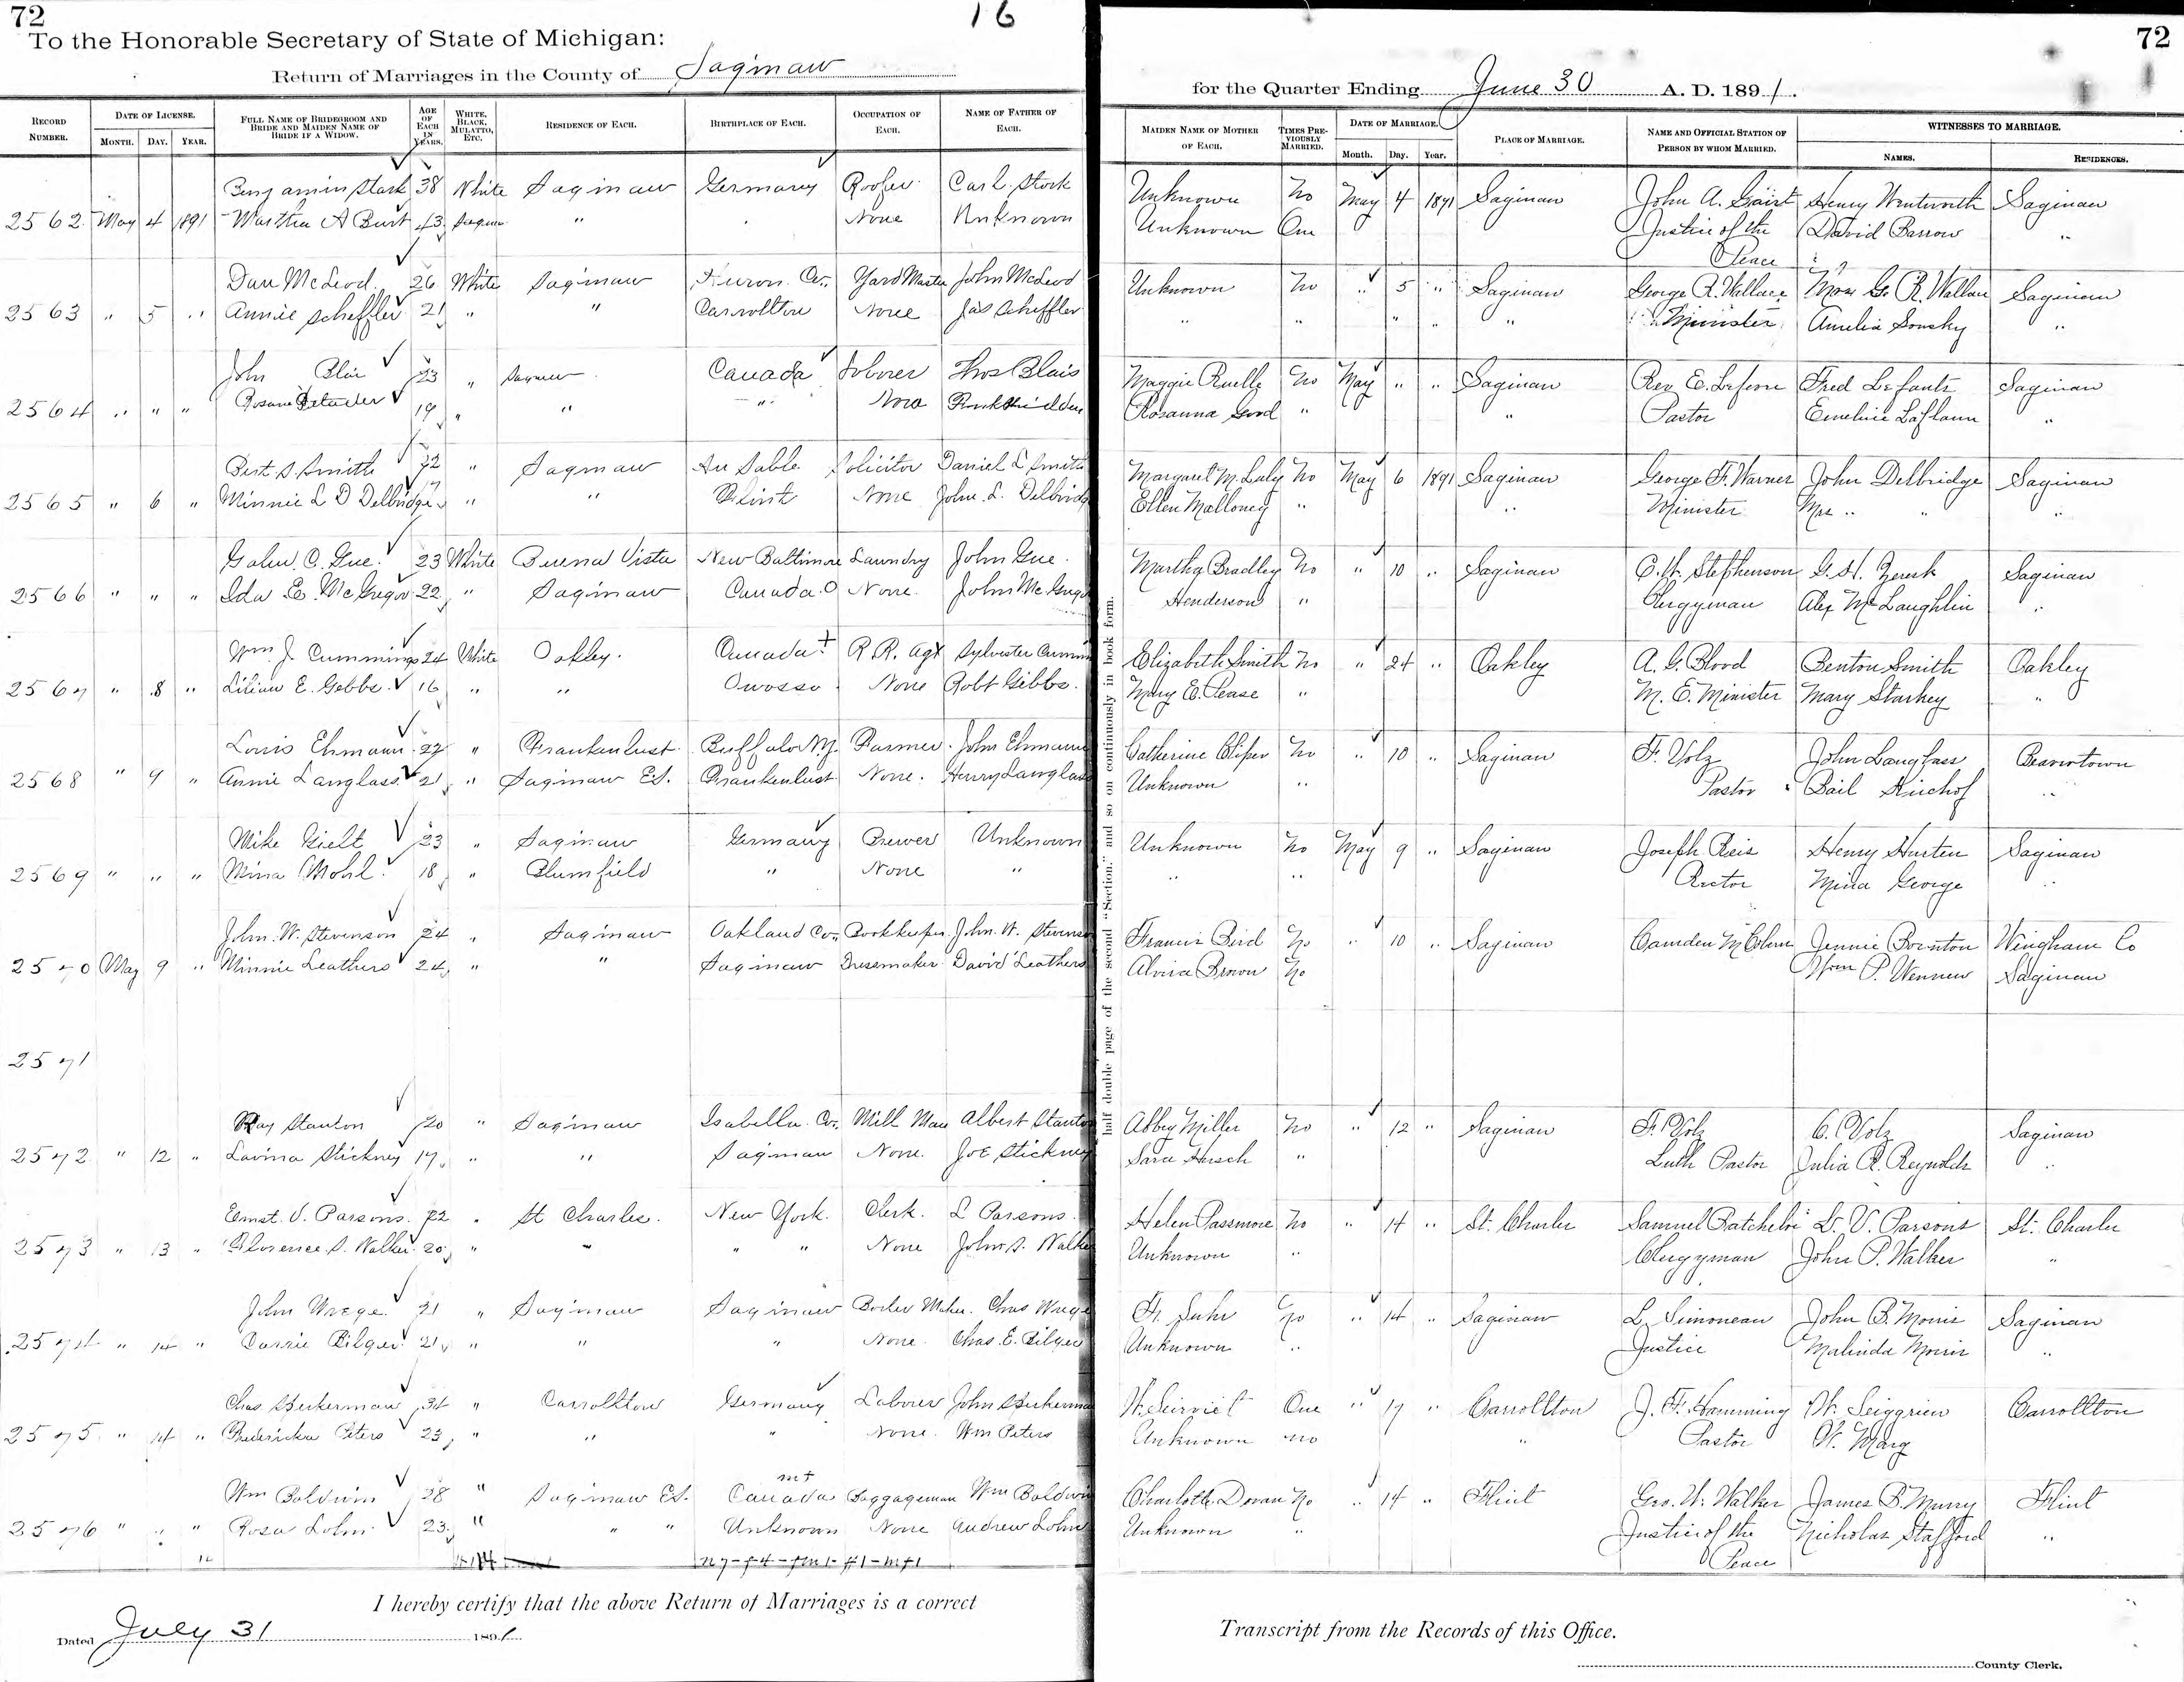 72
16
To the Honorable Secretary of State of Michigan:
Return of Marriages in the County of Saginaw
RECORD NUMBER. DATE OF LICENSE. MONTH. DAY. YEAR. FULL NAME OF BRIDEGROOM AND BRIDE AND MAIDEN NAME OF BRIDE IF A WIDOW. AGE OF EACH IN YEARS. WHITE, BLACK, MULATTO, ETC. RESIDENCE OF EACH. BIRTHPLACE OF EACH. OCCUPATION OF EACH. NAME OF FATHER OF EACH.
Benjamin Stark 38 White Saginaw Germany Roofer Carl Stork
2562 May 4 1891 Martha A Burt 43 " None Unknown
Dan McLeod 26 White Saginaw Huron Co., Yard Master John McLeod
2563 " 5 " Annie Scheffler 21 " " Carrollton None Jas Scheffler
John Blai 23 " Saginaw Canada Laborer Thos Blais
2564 " " " Rosanna 19 " " " None
Bert S. Smith 22 " Saginaw Au Sable Solicitor Daniel L Smith
2565 " 6 " Minnie L D Delbridge " " Flint None John L. Delbridge
C. Gue 23 White Buena Vista New Baltimore Laundry John Gue
2566 " " " Ida E. McGregor 22 " Saginaw Canada O None John McGregor
Wm J. Cummings 24 White Oakley Canada + R.R. Agt Sylvester Cummin
2567 " 8 " Lilian E. Gebbs 16 " " Owosso None Robt Gibbs
Louis Ehmann 27 " Frankenlust Buffalo N.Y. Farmer John Ehmann
2568 " 9 " Annie Langlass 21 " Saginaw E.S. Frankenlust None Henry Langlass
Mike Gielt 23 " Saginaw Germany Brewer Unknown
2569 " " " Mina Mohl 18 " Blumfield " None "
John W. Stevenson 24 " Saginaw Oakland Co., Bookkeeper John W. Stevenson
2570 May 9 " Minnie Leathers 24 " " Saginaw Dressmaker David Leathers
2571
Ray Stanton 20 " Saginaw Isabella Co., Mill Man Albert Stanton
2572 " 12 " Lavina Stickney 17 " " Saginaw None Joe Stickney
Ernst V. Parsons 22 " St Charles New York Clerk L Parsons
2573 " 13 " Florence S. Walker 20 " " " " None John S. Walker
John Wrege 21 " Saginaw Saginaw Boiler Maker Chas Wrege
2574 " 14 " Carrie Bilger 21 " " " None Chas. E. Bilger
Chas 34 " Carrollton Germany Laborer John
2575 " 14 " Fredericka Peters 23 " " " None Wm Peters
Wm Baldwin 28 " Saginaw E.S. Canada Baggageman Wm Baldwin
2576 " " " Rosa Lohn 23 " " " Unknown None Andrew Lohn
I hereby certify that the above Return of Marriages is a correct
Dated July 31 1891
72
for the Quarter Ending June 30 A. D. 1891.
MAIDEN NAME OF MOTHER OF EACH. TIMES PREVIOUSLY MARRIED. DATE OF MARRIAGE. Month. Day. Year. PLACE OF MARRIAGE. NAME AND OFFICIAL STATION OF PERSON BY WHOM MARRIED. WITNESSES TO MARRIAGE. NAMES. RESIDENCES.
half double page of the second "Section," and so on continuously in book form.
Unknown No May 4 1891 Saginaw John A. Henry Wentworth Saginaw
Unknown One Justice of the David Barrow "
Peace
Unknown No " 5 " Saginaw George R. Wallace Mrs G. R. Wallace Saginaw
" " " " " Minister Amelia Sonsky "
Maggie Ruelle No May " " Saginaw Rev E. Lefevre Fred Lefants Saginaw
Rosanna Good " " Pastor Emeline Laflamm "
Margaret M. Luly No May 6 1891 Saginaw George F. Warner John Delbridge Saginaw
Ellen Malloney " " Minister Mrs " " "
Martha Bradley No " 10 " Saginaw C. W. Stephenson G. H. Saginaw
Henderson " Clergyman Alex McLaughlin "
Elizabeth Smith No " 24 " Oakley A. G. Blood Benton Smith Oakley
Mary E. Pease " M. E. Minister Mary Starkey "
Catherine Cliper No " 10 " Saginaw F. Volz John Langlass Beavertown
Unknown " Pastor Bail "
Unknown No May 9 " Saginaw Joseph Reis Henry Harten Saginaw
" " Rector Mina George "
Francis Bird No " 10 " Saginaw Camden M Coburn Jennie Bointon Wingham Co
Alvira Brown No Wm P. Wennew Saginaw
Abbey Miller No " 12 " Saginaw F. Volz C. Volz Saginaw
Sara Hersch " Luth Pastor Julia R. Reynolds "
Helen Passmore No " 14 " St. Charles Samuel Batchelor L. V. Parsons St. Charles
Unknown " Clergyman John P. Walker "
H. Suhr No " 14 " Saginaw L. Simoneau John B. Morris Saginaw
Unknown " Justice Malinda Morris "
One " 17 " Carrollton J. F. Hamming W. Carrollton
Unknown No " Pastor W. Marg
Charlotte Doran No " 14 " Flint Geo. W. Walker James B. Murry Flint
Unknown " Justice of the Nicholas Stafford "
Peace
Transcript from the Records of this Office.
County Clerk.